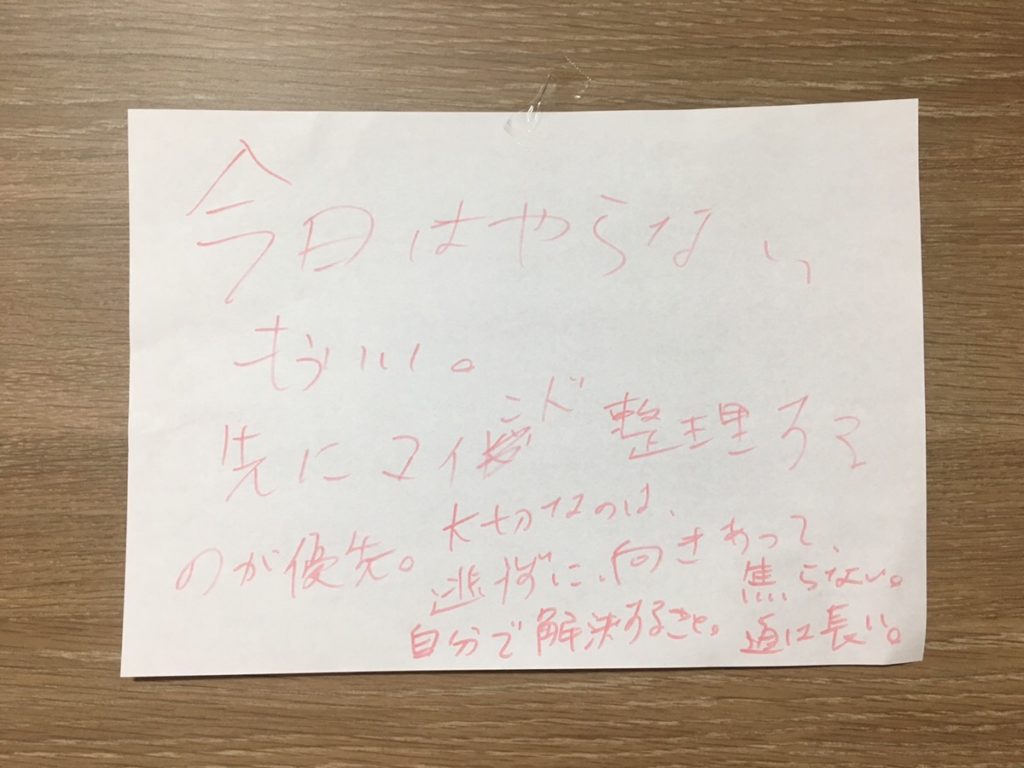 今日はやらない
もういい。
先にマインド整理する
のが優先。
大切なのは、
逃げずに、向きあって、
自分で解決すること。
焦らない。
道は長い。